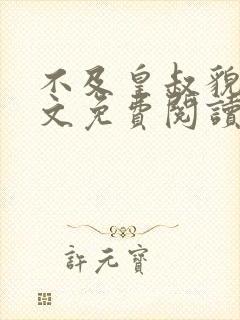 不及皇叔貌
文免費閱讀
許元寶